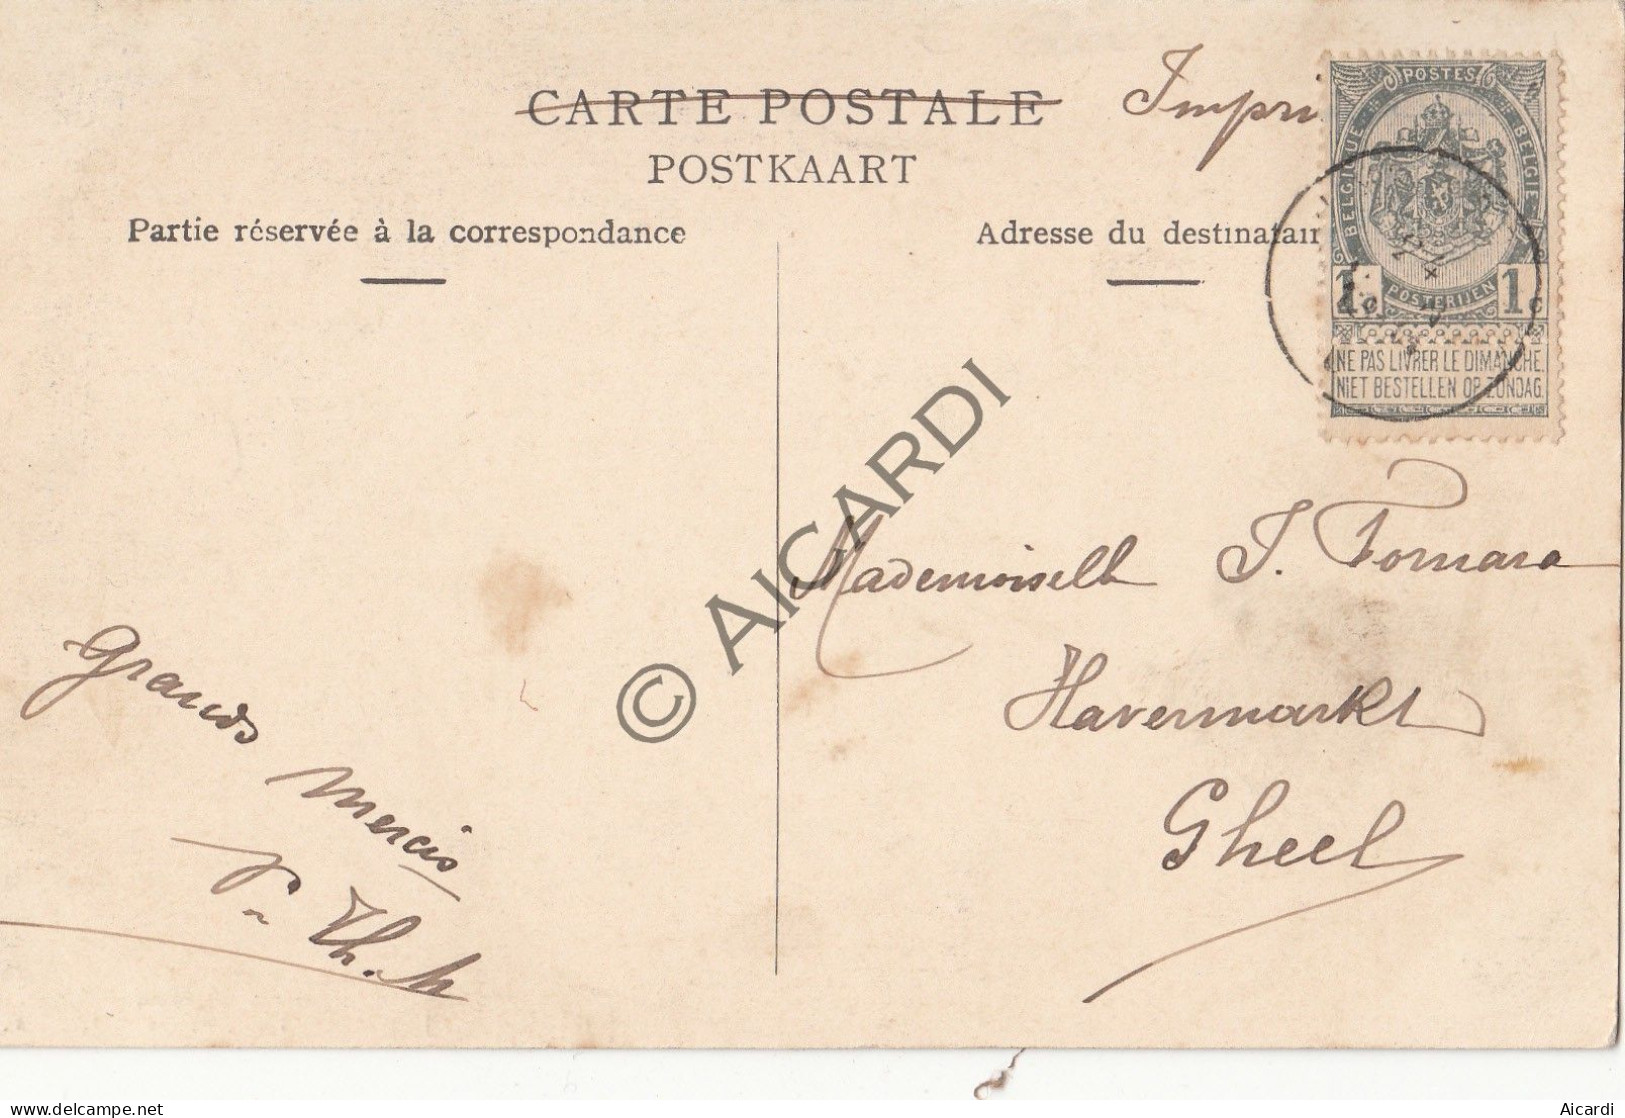 CARTE POSTALE
POSTKAART
Impri
Partie réservée à la correspondance
Adresse du destinatair
POSTES
BELGIQUE
BELGIE
1c
POSTERIJEN
1c
NE PAS LIVRER LE DIMANCHE.
NIET BESTELLEN OP ZONDAG.
Mademoiselle J. Fornara
Havermarkt
Gheel
Grands
mercis
Th.
© AICARDI
delcampe.net
Aicardi